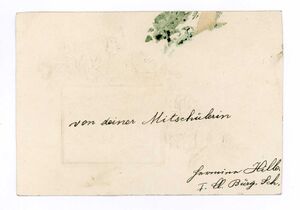 von deiner Mitschülerin
Hermine Hilb.
I. Cl. Bürg. Sch.